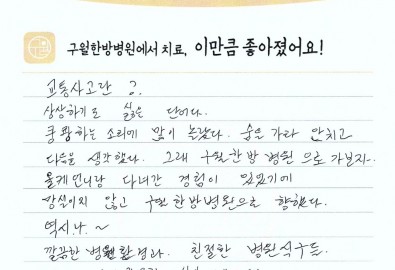 구월한방병원에서 치료, 이만큼 좋아졌어요!
교통사고란 ?.
상상하기도 싫은 단어다.
쿵쾅하는 소리에 많이 놀랐다. 숨을 가라 안치고
다음을 생각했다. 그래 구월한방 병원 으로 가보자.
올케언니랑 다녀간 경험이 있었기에
망설이지 않고 구월한방병원으로 향했다.
역시나. ~
깔끔한 병원환경과. 친절한 병원식구들.